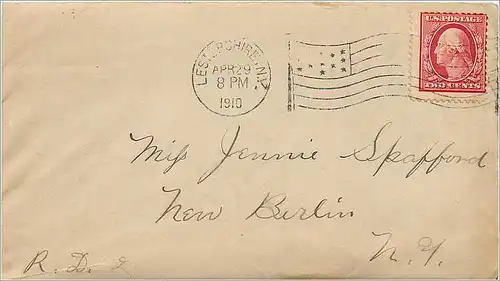 LESTERSHIRE, N.Y.
APR 29
8 PM
1910
U.S. POSTAGE
TWO CENTS
Miss Jennie Spafford
New Berlin
N.Y.
R. D. 2